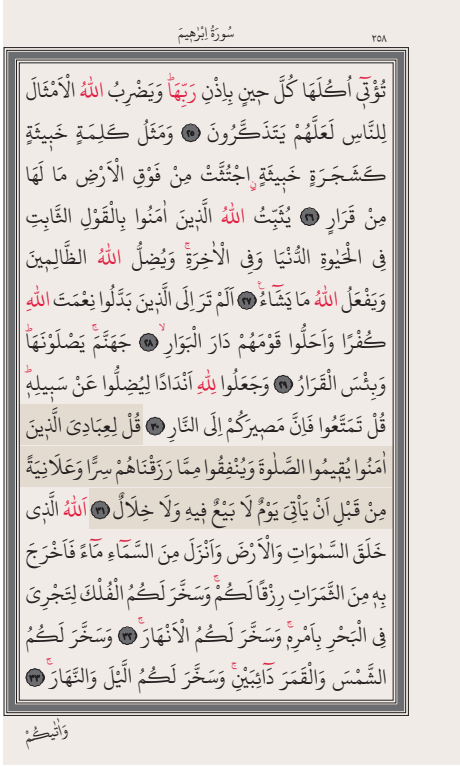 سُورَةُ اِبْرٰهِيمَ
٢٥٨
تُؤْتٖٓي اُكُلَهَا كُلَّ حٖينٍ بِاِذْنِ رَبِّهَاۜ وَيَضْرِبُ اللّٰهُ الْاَمْثَالَ
لِلنَّاسِ لَعَلَّهُمْ يَتَذَكَّرُونَ ٢٥ وَمَثَلُ كَلِمَةٍ خَبٖيثَةٍ
كَشَجَرَةٍ خَبٖيثَةٍۨ اجْتُثَّتْ مِنْ فَوْقِ الْاَرْضِ مَا لَهَا
مِنْ قَرَارٍ ٢٦ يُثَبِّتُ اللّٰهُ الَّذٖينَ اٰمَنُوا بِالْقَوْلِ الثَّابِتِ
فِى الْحَيٰوةِ الدُّنْيَا وَفِى الْاٰخِرَةِۚ وَيُضِلُّ اللّٰهُ الظَّالِمٖينَ
وَيَفْعَلُ اللّٰهُ مَا يَشَٓاءُ۟ ٢٧ اَلَمْ تَرَ اِلَى الَّذٖينَ بَدَّلُوا نِعْمَتَ اللّٰهِ
كُفْرًا وَاَحَلُّوا قَوْمَهُمْ دَارَ الْبَوَارِۙ ٢٨ جَهَنَّمَۚ يَصْلَوْنَهَاۜ
وَبِئْسَ الْقَرَارُ ٢٩ وَجَعَلُوا لِلّٰهِ اَنْدَادًا لِيُضِلُّوا عَنْ سَبٖيلِهٖۜ
قُلْ تَمَتَّعُوا فَاِنَّ مَصٖيرَكُمْ اِلَى النَّارِ ٣٠ قُلْ لِعِبَادِىَ الَّذٖينَ
اٰمَنُوا يُقٖيمُوا الصَّلٰوةَ وَيُنْفِقُوا مِمَّا رَزَقْنَاهُمْ سِرًّا وَعَلَانِيَةً
مِنْ قَبْلِ اَنْ يَأْتِىَ يَوْمٌ لَا بَيْعٌ فٖيهِ وَلَا خِلَالٌ ٣١ اَللّٰهُ الَّذٖى
خَلَقَ السَّمٰوَاتِ وَالْاَرْضَ وَاَنْزَلَ مِنَ السَّمَٓاءِ مَٓاءً فَاَخْرَجَ
بِهٖ مِنَ الثَّمَرَاتِ رِزْقًا لَكُمْۚ وَسَخَّرَ لَكُمُ الْفُلْكَ لِتَجْرِىَ
فِى الْبَحْرِ بِاَمْرِهٖۚ وَسَخَّرَ لَكُمُ الْاَنْهَارَۚ ٣٢ وَسَخَّرَ لَكُمُ
الشَّمْسَ وَالْقَمَرَ دَٓائِبَيْنِۚ وَسَخَّرَ لَكُمُ الَّيْلَ وَالنَّهَارَۚ ٣٣
وَاٰتٰيكُمْ